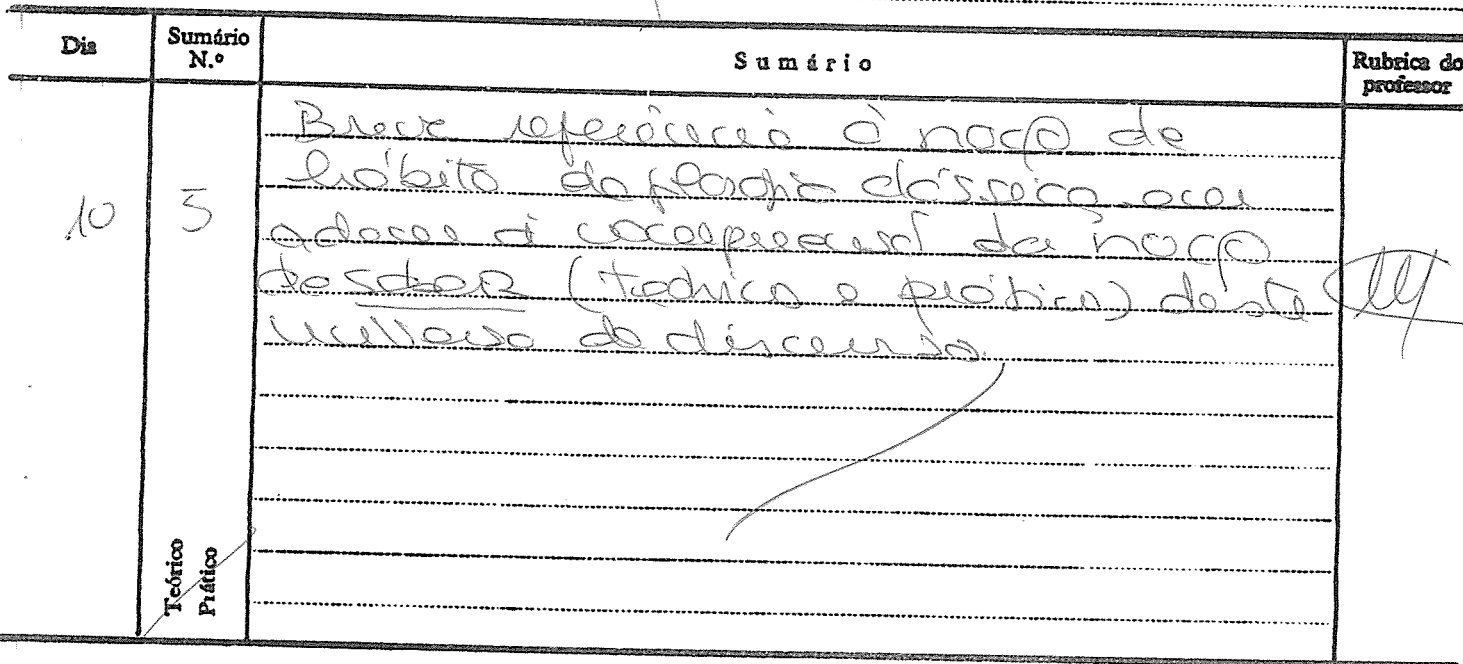 Dia Sumário N.º Sumário Rubrica do professor
Breve referência à noção de
hábito da filosofia clássica
10 5 à compreensão da noção
de saber (teórico e prático) deste
universo de discurso.
Teórico
Prático